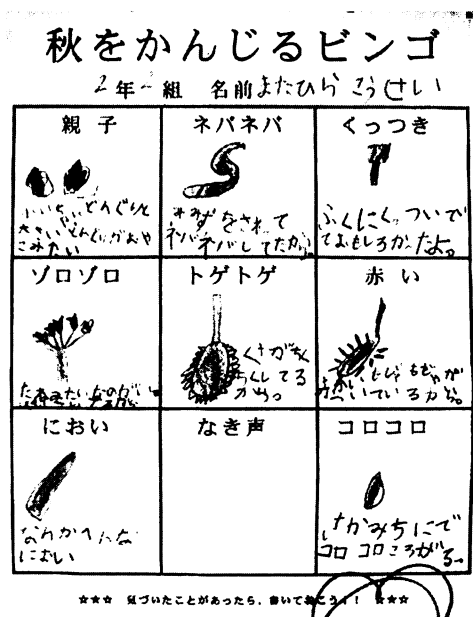 秋をかんじるビンゴ
2年 組 名前 またひら こうせい
親子
ネバネバ
くっつき
小いどんぐりと
大きいどんぐりがおや
こみたい
みみずをさわって
ネバネバしてたから
ふくにくっついで
ておもしろかったよ。
ゾロゾロ
トゲトゲ
赤い
くさがちく
ちくしてる
から。
いているから。
におい
なき声
コロコロ
なんかへんな
におい
さかみちにで
コロコロころがる。
☆☆☆ 気づいたことがあったら、書いておこう!! ☆☆☆